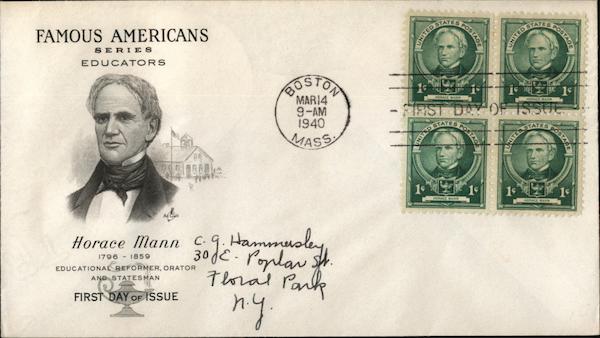 FAMOUS AMERICANS
SERIES
EDUCATORS
Horace Mann
1796 - 1859
EDUCATIONAL REFORMER, ORATOR
AND STATESMAN
FIRST DAY OF ISSUE
BOSTON
MAR 14
9-AM
1940
MASS.
UNITED STATES POSTAGE
1¢ 1¢
HORACE MANN
UNITED STATES POSTAGE
1¢ 1¢
HORACE MANN
FIRST DAY OF ISSUE
UNITED STATES POSTAGE
1¢ 1¢
HORACE MANN
UNITED STATES POSTAGE
1¢ 1¢
HORACE MANN
C. G. Hammersley
30 E. Poplar St.
Floral Park
N.Y.